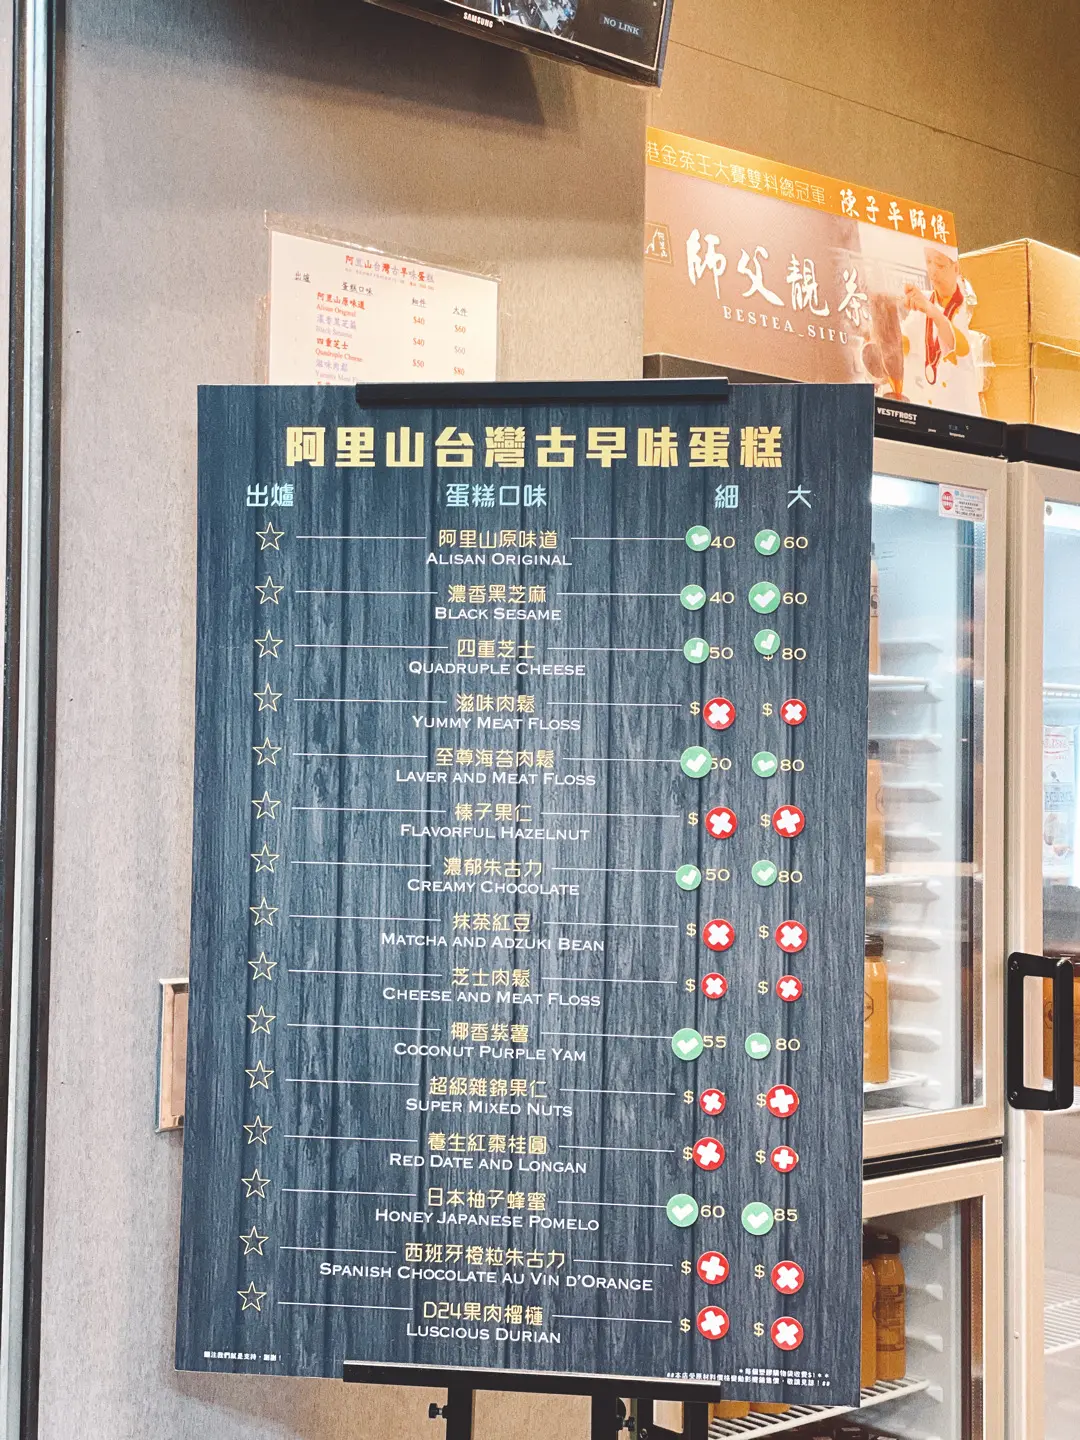 SAMSUNG
NO LINK
港金茶王大賽雙料總冠軍 陳子平師傅
阿里山
師父靚茶
BESTEA_SIFU
VESTFROST
阿里山台灣古早味蛋糕
出爐 蛋糕口味 細件 大件
阿里山原味道
Alisan Original $40 $60
濃香黑芝蔴
Black Sesame $40 $60
四重芝士
Quadruple Cheese $50 $80
滋味肉鬆
阿里山台灣古早味蛋糕
出爐 蛋糕口味 細 大
阿里山原味道 40 60
ALISAN ORIGINAL
濃香黑芝麻 40 60
BLACK SESAME
四重芝士 50 80
QUADRUPLE CHEESE
滋味肉鬆 $ $
YUMMY MEAT FLOSS
至尊海苔肉鬆 50 80
LAVER AND MEAT FLOSS
榛子果仁 $ $
FLAVORFUL HAZELNUT
濃郁朱古力 50 80
CREAMY CHOCOLATE
抹茶紅豆 $ $
MATCHA AND ADZUKI BEAN
芝士肉鬆 $ $
CHEESE AND MEAT FLOSS
椰香紫薯 55 80
COCONUT PURPLE YAM
超級雜錦果仁 $ $
SUPER MIXED NUTS
養生紅棗桂圓 $ $
RED DATE AND LONGAN
日本柚子蜂蜜 60 85
HONEY JAPANESE POMELO
西班牙橙粒朱古力 $ $
SPANISH CHOCOLATE AU VIN D'ORANGE
D24果肉榴槤 $ $
LUSCIOUS DURIAN
關注我們就是支持，謝謝！
*每個塑膠購物袋收費$1**
##本店受原材料價格變動影響銷售價，敬請見諒！##